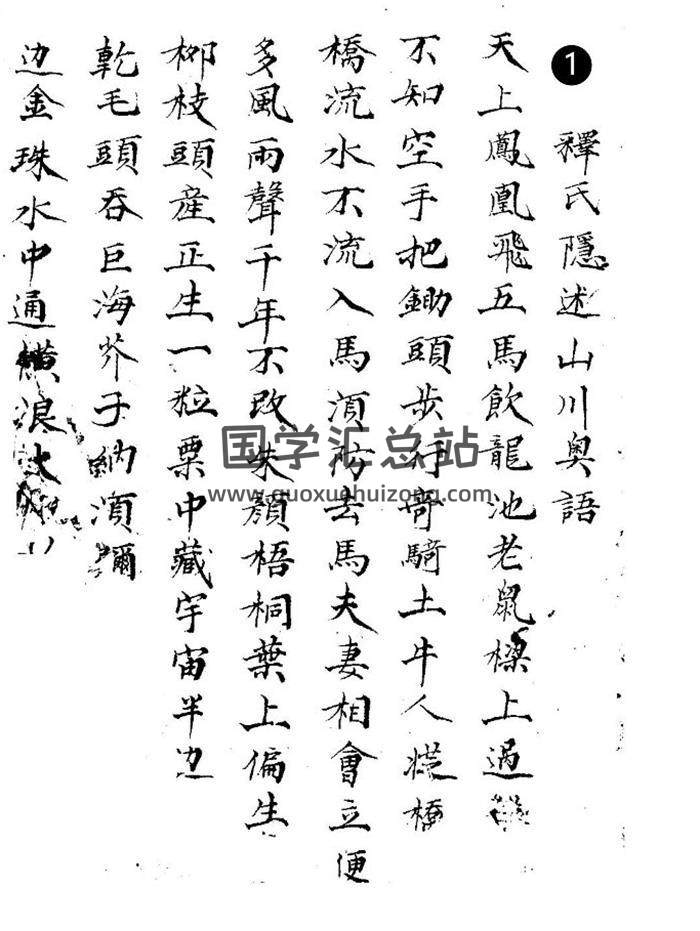 1
釋氏隱述山川奧語
天上鳳凰飛五馬飲龍池老鼠樑上過
不知空手把鋤頭步行竒騎土牛人從橋
橋流水不流入馬湏防去馬夫妻相會立便
多風雨聲千年不改朱顔梧桐葉上偏生
柳枝頭産正生一粒粟中藏宇宙半边
乾毛頭吞巨海芥子納湏彌
边金珠水中通橫浪
国学汇总站
www.guoxuehuizong.com